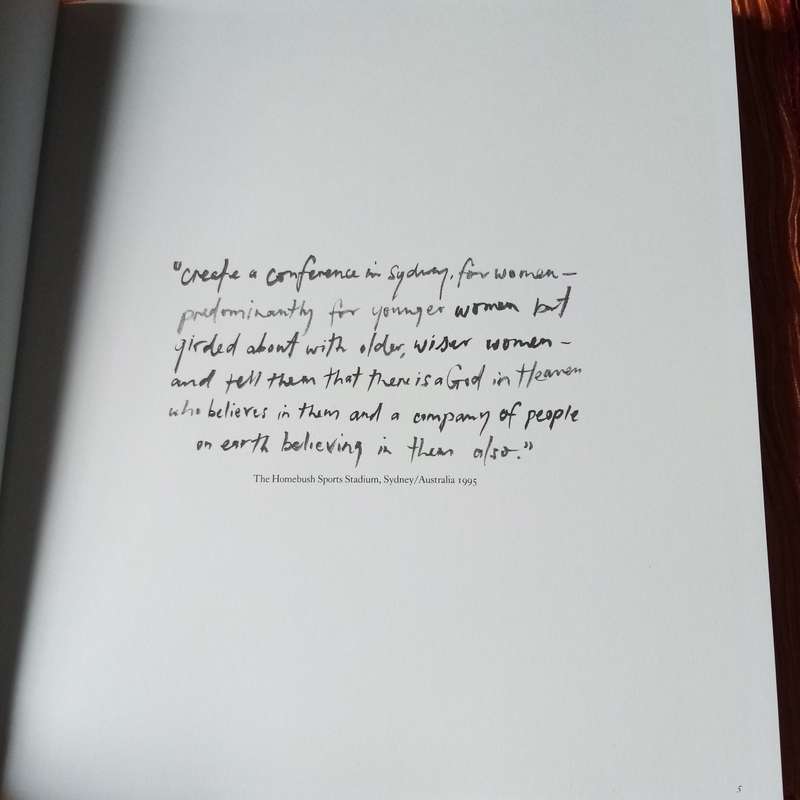 "create a conference in Sydney, for women –
predominantly for younger women but
girded about with older, wiser women –
and tell them that there is a God in Heaven
who believes in them and a company of people
on earth believing in them also."
The Homebush Sports Stadium, Sydney/Australia 1995
5